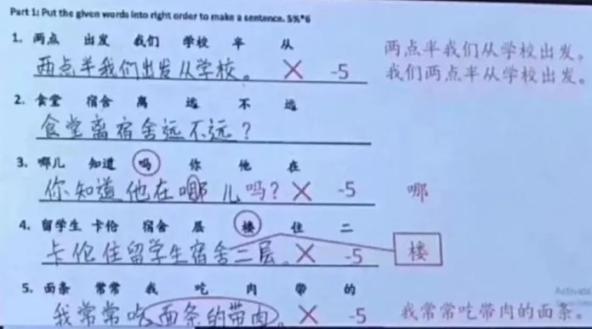 Part 1: Put the given words into right order to make a sentence. 5%*6
1. 两点 出发 我们 学校 半 从
两点半我们出发从学校。 × -5
两点半我们从学校出发。
我们两点半从学校出发。
2. 食堂 宿舍 离 远 不 远
食堂离宿舍远不远？
3. 哪儿 知道 吗 你 他 在
你知道他在哪儿吗？ × -5 哪
4. 留学生 卡伦 宿舍 层 楼 住 二
卡伦住留学生宿舍二层。 × -5 楼
5. 面条 常常 我 吃 肉 带 的
我常常吃面条的带肉。 × -5 我常常吃带肉的面条。
Activate